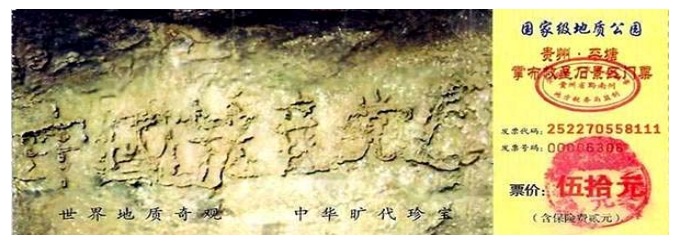 中国共产党
世界地质奇观 中华旷代珍宝
国家级地质公园
贵州·平塘
掌布藏字石景区门票
贵州省黔南州
地方税务局监制
发票代码：252270558111
发票号码：00006306
票价：伍拾元
（含保险费贰元）